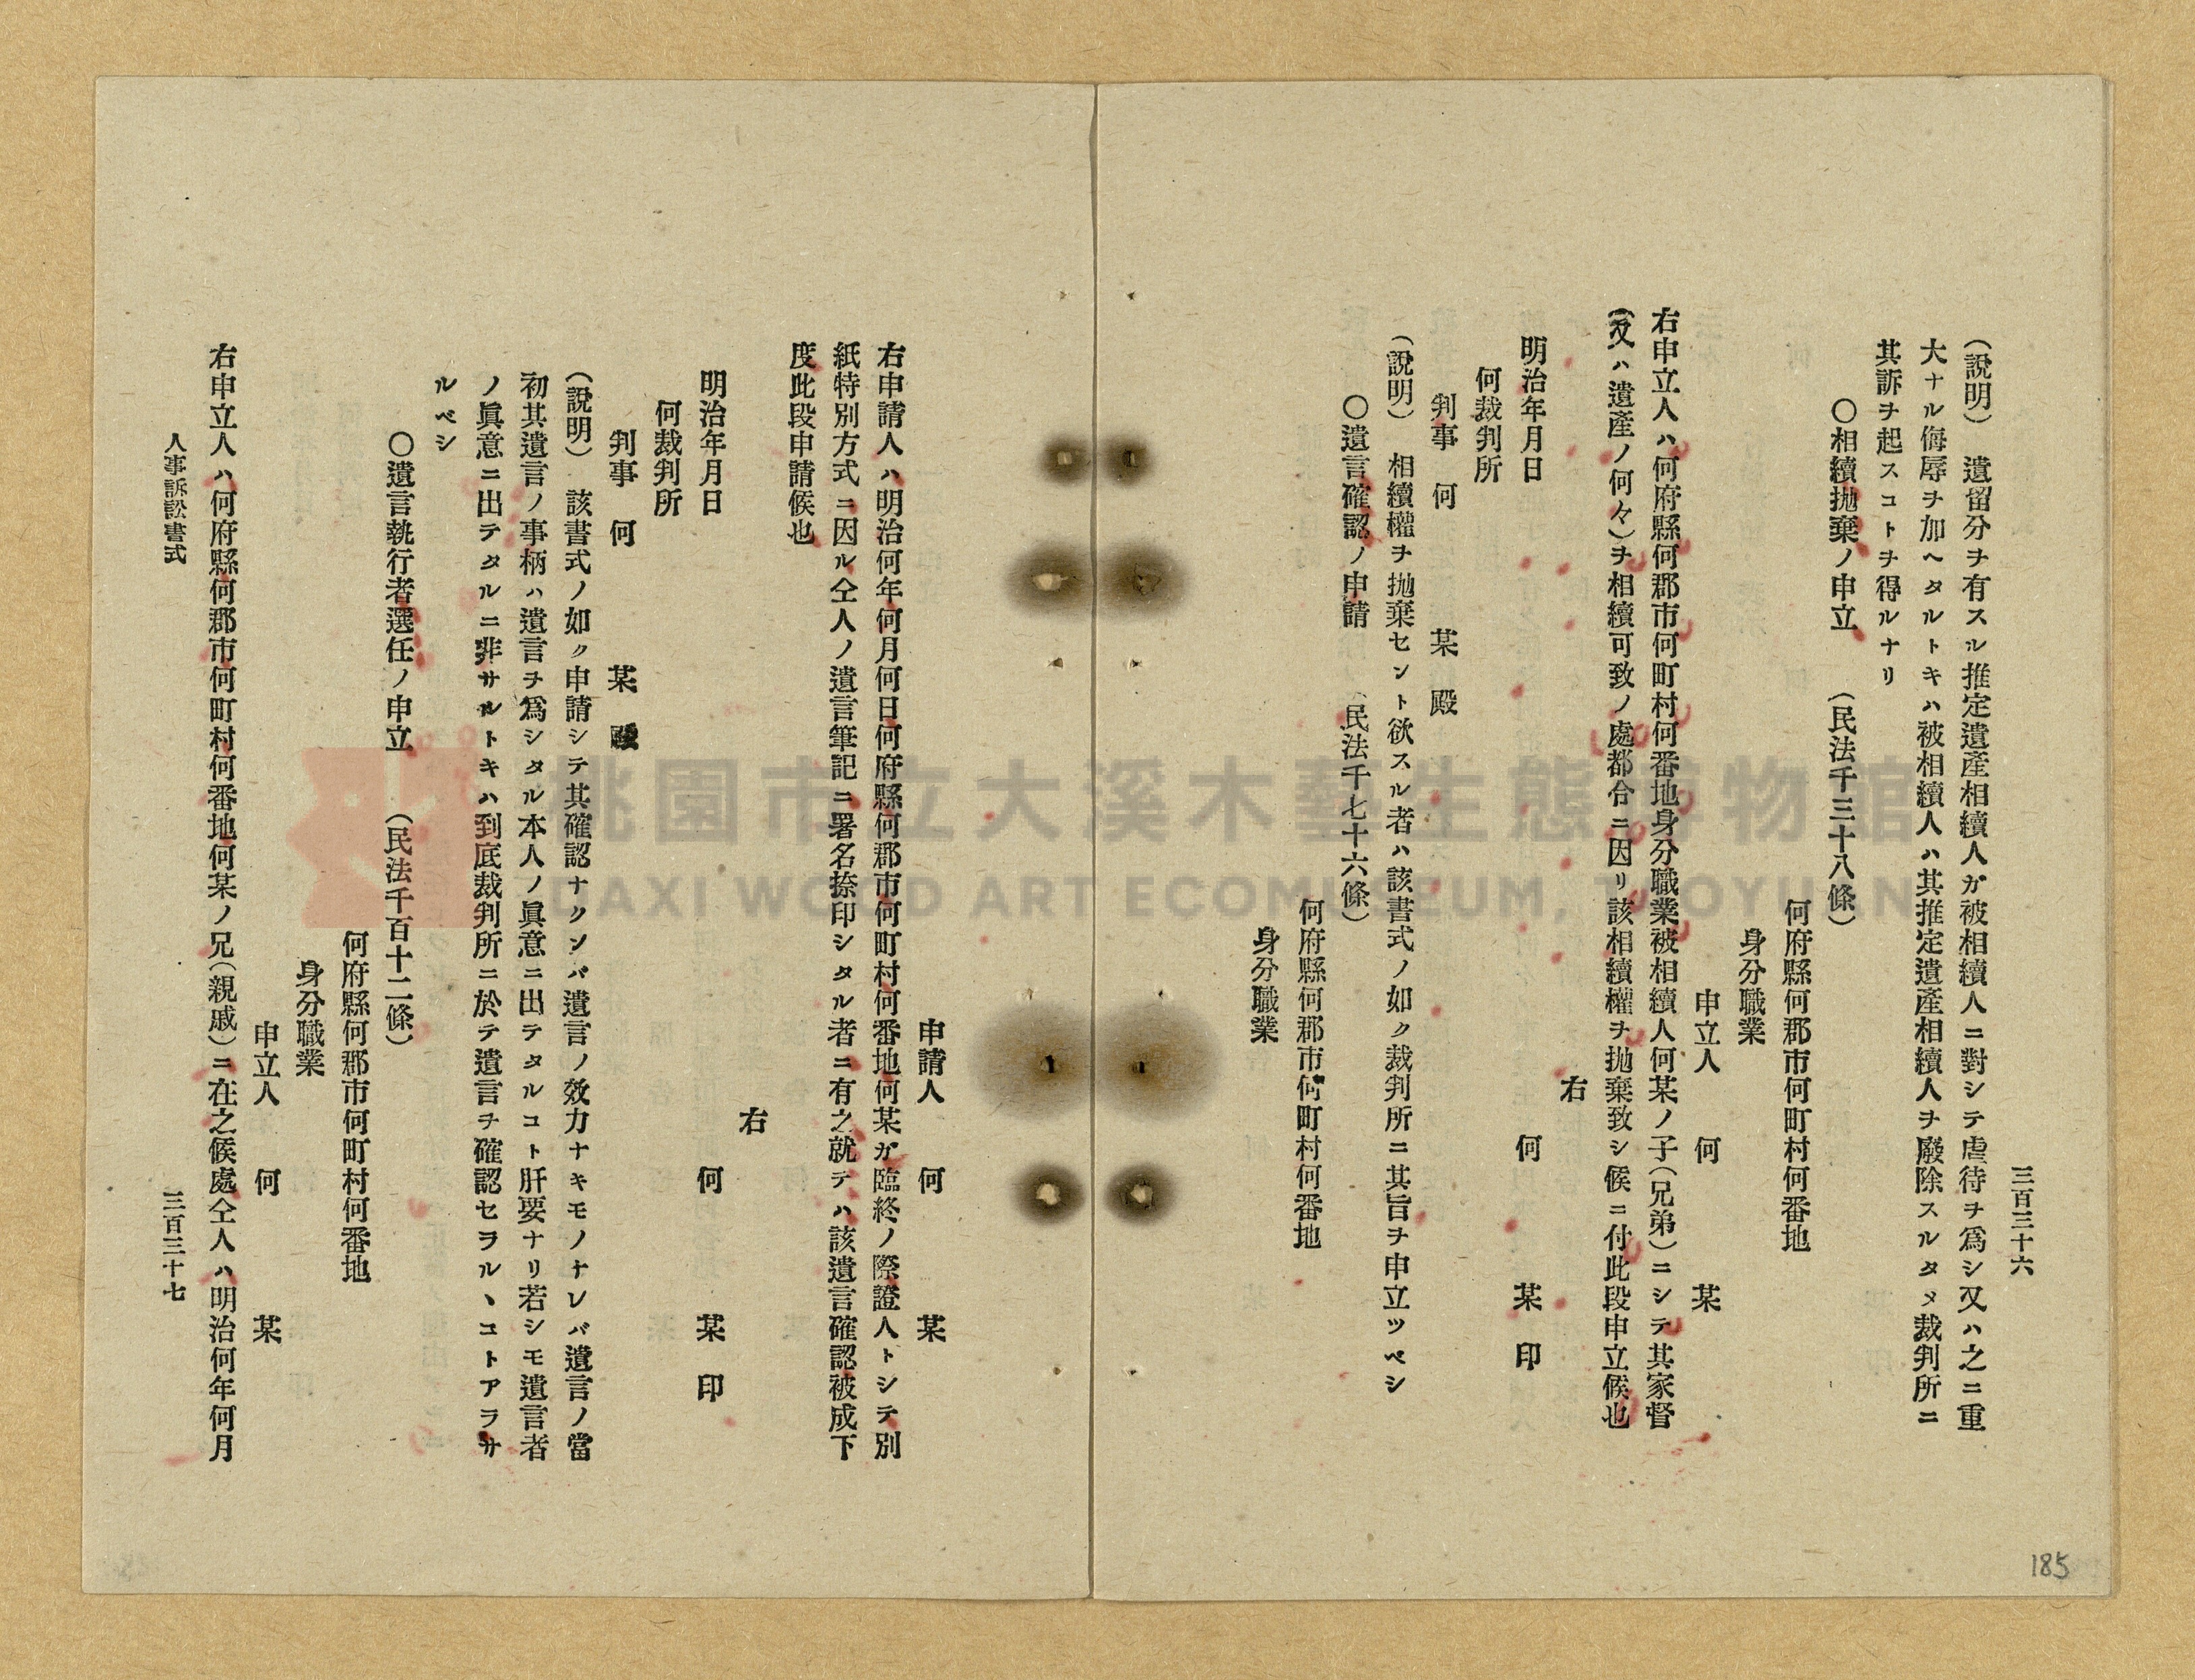 三百三十六
(說明)　遺留分ヲ有スル推定遺產相續人ガ被相續人ニ對シテ虐待ヲ爲シ又ハ之ニ重
大ナル侮辱ヲ加ヘタルトキハ被相續人ハ其推定遺產相續人ヲ廢除スルタメ裁判所ニ
其訴ヲ起スコトヲ得ルナリ
〇相續拋棄ノ申立　(民法千三十八條)
何府縣何郡市何町村何番地
身分職業
申立人　何　某
右申立人ハ何府縣何郡市何町村何番地身分職業被相續人何某ノ子(兄弟)ニシテ其家督
(又ハ遺產ノ何々)ヲ相續可致ノ處都合ニ因リ該相續權ヲ拋棄致シ候ニ付此段申立候也
右
明治年月日　何　某　印
何裁判所
判事　何　某　殿
(說明)　相續權ヲ拋棄セント欲スル者ハ該書式ノ如ク裁判所ニ其旨ヲ申立ツベシ
〇遺言確認ノ申請　(民法千七十六條)
何府縣何郡市何町村何番地
身分職業
申請人　何　某
右申請人ハ明治何年何月何日何府縣何郡市何町村何番地何某ガ臨終ノ際證人トシテ別
紙特別方式ニ因ル仝人ノ遺言筆記ニ署名捺印シタル者ニ有之就テハ該遺言確認被成下
度此段申請候也
右
明治年月日　何　某　印
何裁判所
判事　何　某　殿
(說明)　該書式ノ如ク申請シテ其確認ナクンバ遺言ノ效力ナキモノナレバ遺言ノ當
初其遺言ノ事柄ハ遺言ヲ爲シタル本人ノ眞意ニ出テタルコト肝要ナリ若シモ遺言者
ノ眞意ニ出テタルニ非サルトキハ到底裁判所ニ於テ遺言ヲ確認セラルヽコトアラサ
ルベシ
〇遺言執行者選任ノ申立　(民法千百十二條)
何府縣何郡市何町村何番地
身分職業
申立人　何　某
右申立人ハ何府縣何郡市何町村何番地何某ノ兄(親戚)ニ在之候處仝人ハ明治何年何月
人事訴訟書式　三百三十七
185
桃園市立大溪木藝生態博物館
DAXI WOOD ART ECOMUSEUM, TAOYUAN